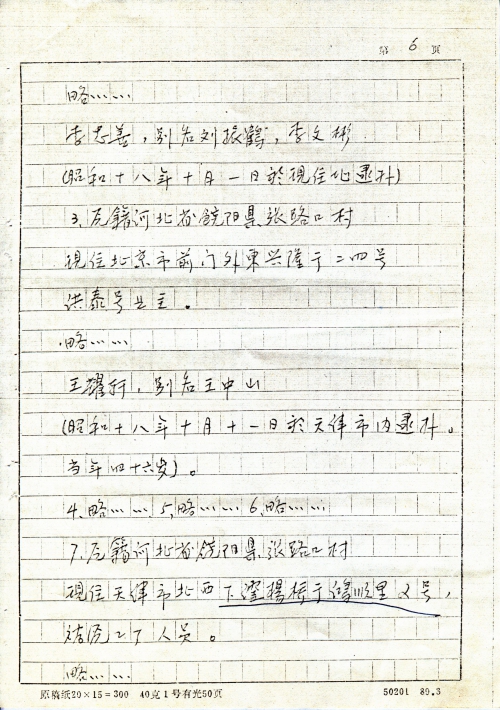 第 6 页
略……
李志善，别名刘振鹤，李文彬
(昭和十八年十月一日於现住地逮捕)
3、原籍河北省饶阳县张路口村
现住北京市前门外東兴隆于二四号
洪泰号业主。
略……
王耀轩，别名王中山
(昭和十八年十月十一日於天津市内逮扑。
当年四十六岁)。
4、略……5、略……6、略……
7、原籍河北省饶阳县张路口村
现住天津市北西下洼杨桥于鸿顺里2号，
人员。
略……
原稿纸20×15=300 40克1号有光50页 50201 89.3